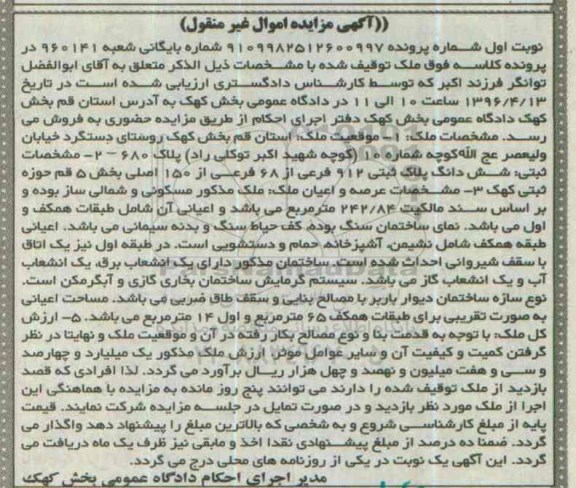 ((آگهی مزایده اموال غیر منقول))
نوبت اول شماره پرونده ۹۱۰۹۹۸۲۵۱۲۶۰۰۹۹۷ شماره بایگانی شعبه ۹۶۰۱۴۱ در
پرونده کلاسه فوق ملک توقیف شده با مشخصات ذیل الذکر متعلق به آقای ابوالفضل
توانگر فرزند اکبر که توسط کارشناس دادگستری ارزیابی شده است در تاریخ
۱۳۹۶/۴/۱۳ ساعت ۱۰ الی ۱۱ در دادگاه عمومی بخش کهک به آدرس استان قم بخش
کهک دادگاه عمومی بخش کهک دفتر اجرای احکام از طریق مزایده حضوری به فروش می
رسد. مشخصات ملک: ۱- موقعیت ملک: استان قم بخش کهک روستای دستگرد خیابان
ولیعصر عج الله کوچه شماره ۱۰ (کوچه شهید اکبر توکلی راد) پلاک ۶۸۰ -۲- مشخصات
ثبتی: شش دانگ پلاک ثبتی ۹۱۲ فرعی از ۶۸ فرعی از ۱۵۰ اصلی بخش ۵ قم حوزه
ثبتی کهک ۳- مشخصات عرصه و اعیان ملک: ملک مذکور مسکونی و شمالی ساز بوده و
بر اساس سند مالکیت ۲۴۲/۸۴ مترمربع می باشد و اعیانی آن شامل طبقات همکف و
اول می باشد. نمای ساختمان سنگ بوده، کف حیاط سنگ و بدنه سیمانی می باشد. اعیانی
طبقه همکف شامل نشیمن، آشپزخانه، حمام و دستشویی است. در طبقه اول نیز یک اتاق
با سقف شیروانی احداث شده است. ساختمان مذکور دارای یک انشعاب برق، یک انشعاب
آب و یک انشعاب گاز می باشد. سیستم گرمایش ساختمان بخاری گازی و آبگرمکن است.
نوع سازه ساختمان دیوار باربر با مصالح بنایی و سقف طاق ضربی می باشد. مساحت اعیانی
به صورت تقریبی برای طبقات همکف ۶۵ مترمربع و اول ۱۴ مترمربع می باشد. ۵- ارزش
کل ملک: با توجه به قدمت بنا و نوع مصالح بکار رفته در آن و موقعیت ملک و نهایتا در نظر
گرفتن کمیت و کیفیت آن و سایر عوامل موثر ارزش ملک مذکور یک میلیارد و چهارصد
و سی و هفت میلیون و نهصد و چهل هزار ریال برآورد می گردد. لذا افرادی که قصد
بازدید از ملک توقیف شده را دارند می توانند پنج روز مانده به مزایده با هماهنگی این
اجرا از ملک مورد نظر بازدید و در صورت تمایل در جلسه مزایده شرکت نمایند. قیمت
پایه از مبلغ کارشناسی شروع و به شخصی که بالاترین مبلغ را پیشنهاد دهد واگذار می
گردد. ضمنا ده درصد از مبلغ پیشنهادی نقدا اخذ و مابقی نیز ظرف یک ماه دریافت می
گردد. این آگهی یک نوبت در یکی از روزنامه های محلی درج می گردد.
مدیر اجرای احکام دادگاه عمومی بخش کهک